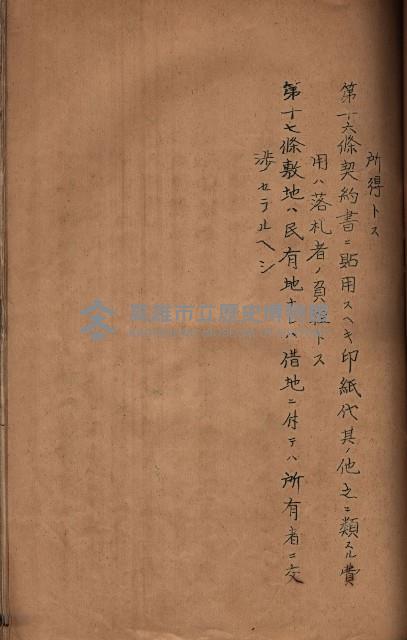 所得トス
第十六條契約書ニ貼用スヘキ印紙代其ノ他之ニ類スル費
用ハ落札者ノ負担トス
第十七條敷地ハ民有地ナレハ借地ニ付テハ所有者ニ交
渉セラルヘシ
高雄市立歷史博物館